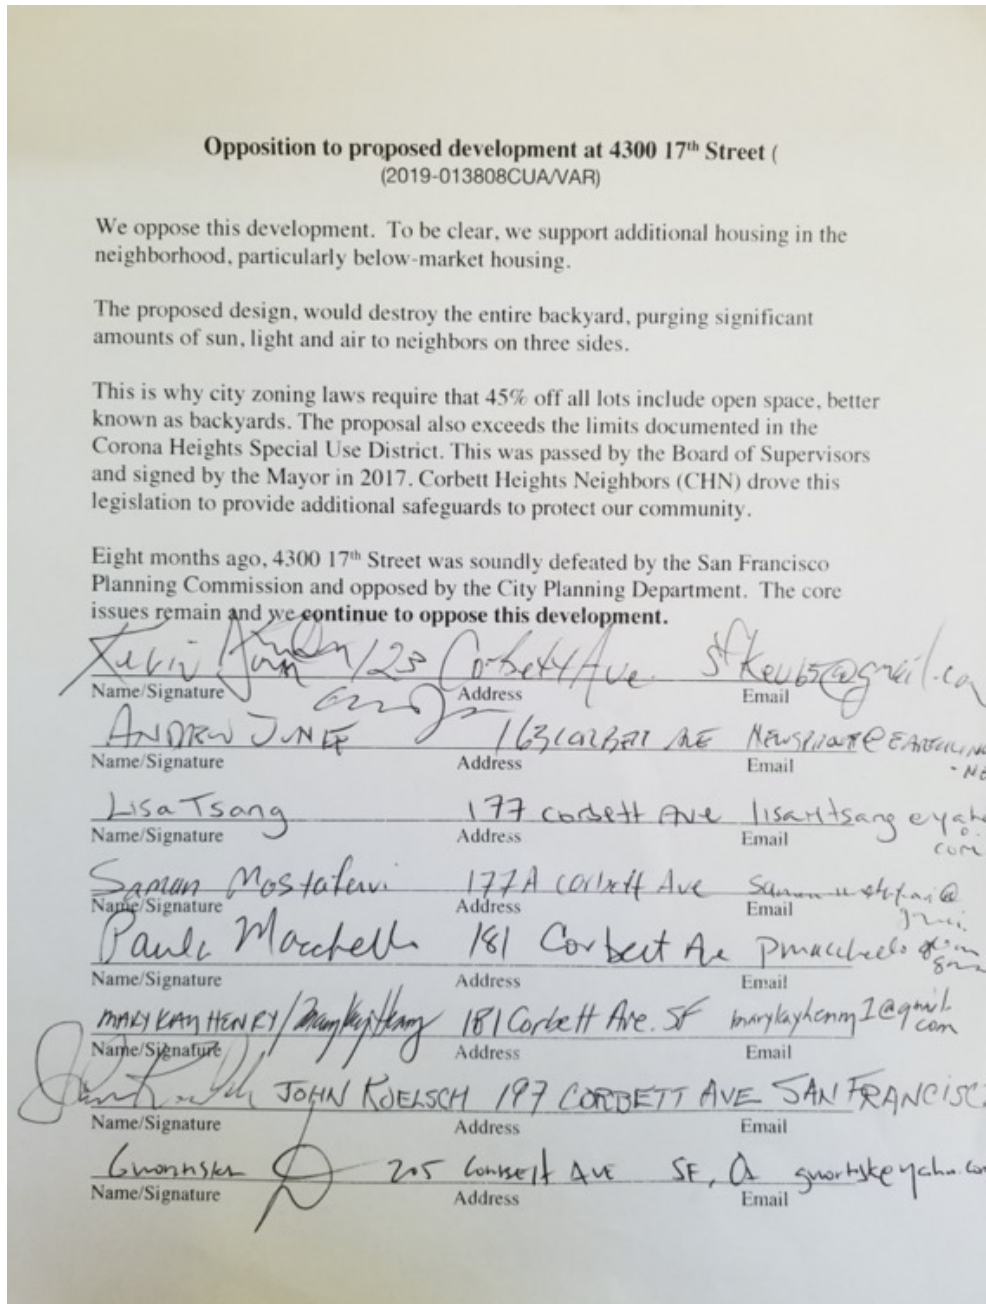 Opposition to proposed development at 4300 17th Street (
(2019-013808CUA/VAR)
We oppose this development. To be clear, we support additional housing in the
neighborhood, particularly below-market housing.
The proposed design, would destroy the entire backyard, purging significant
amounts of sun, light and air to neighbors on three sides.
This is why city zoning laws require that 45% off all lots include open space, better
known as backyards. The proposal also exceeds the limits documented in the
Corona Heights Special Use District. This was passed by the Board of Supervisors
and signed by the Mayor in 2017. Corbett Heights Neighbors (CHN) drove this
legislation to provide additional safeguards to protect our community.
Eight months ago, 4300 17th Street was soundly defeated by the San Francisco
Planning Commission and opposed by the City Planning Department. The core
issues remain and we continue to oppose this development.
Kevin 123 Corbett Ave
Name/Signature Address Email
ANDREW JUNE 163 CORBETT AVE
Name/Signature Address Email
Lisa Tsang 177 Corbett Ave
Name/Signature Address Email
com
Saman 177A Corbett Ave
Name/Signature Address Email
Paula 181 Corbett Ave
Name/Signature Address Email
MARY KAY HENRY / 181 Corbett Ave. SF
com
Name/Signature Address Email
JOHN KOELSCH 197 CORBETT AVE SAN FRANCISC
Name/Signature Address Email
205 Corbett Ave SF,
Name/Signature Address Email